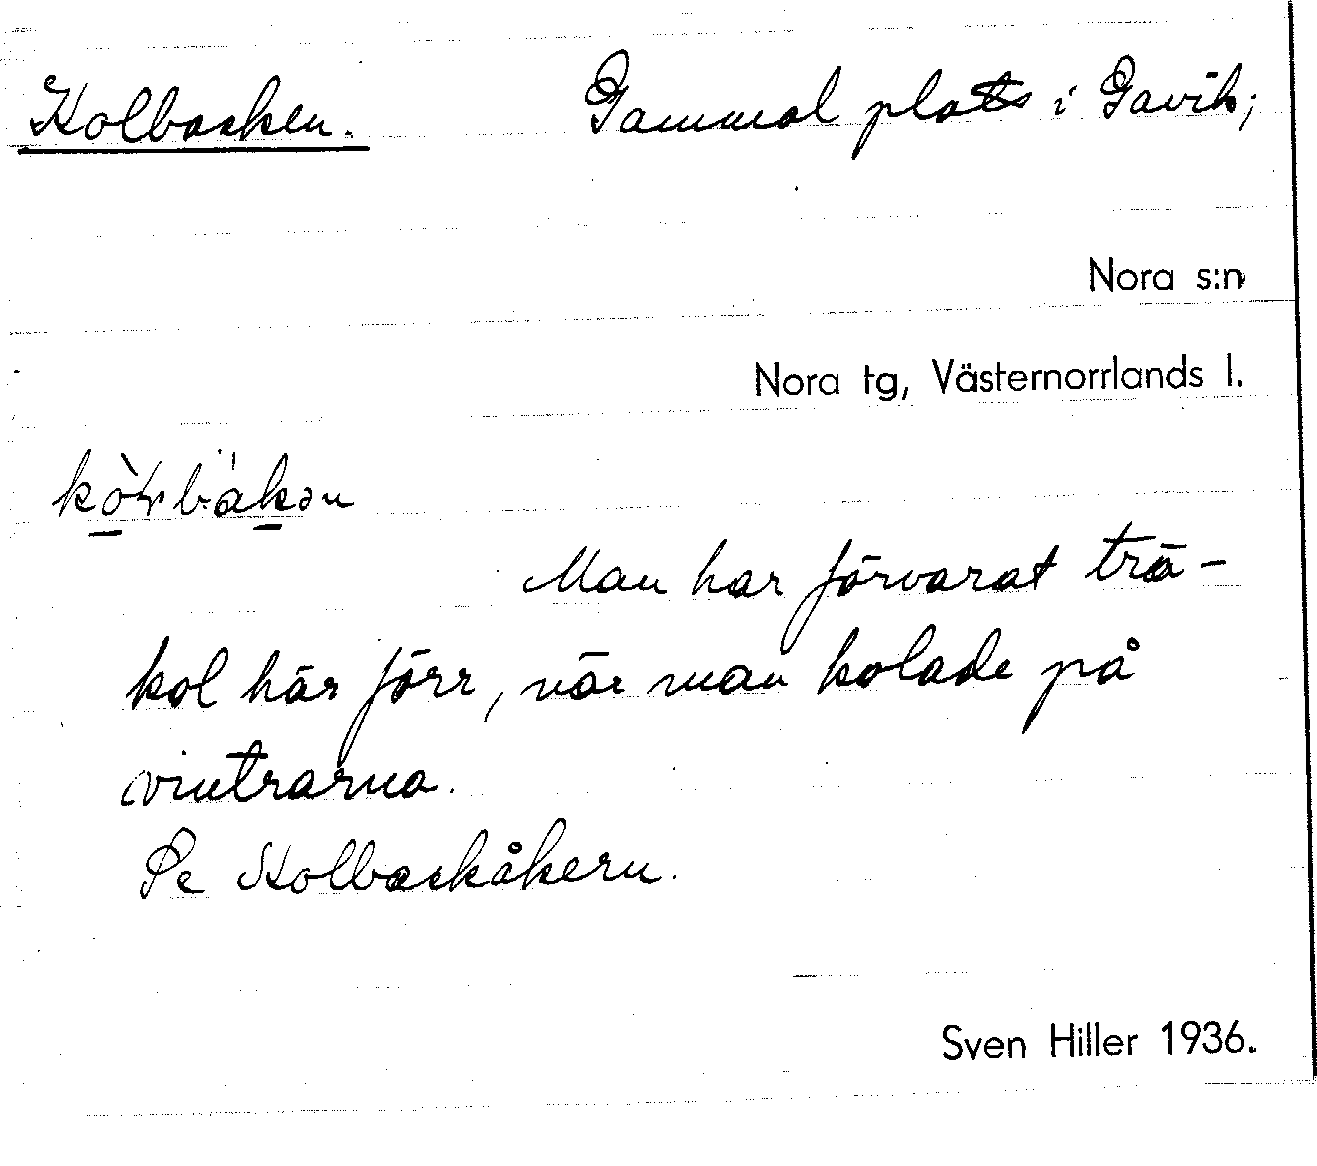 Kolbacken. Gammal plats i Gavik;
Nora s:n
Nora tg, Västernorrlands l.
Man har förvarat trä-
kol här förr, när man kolade på
vintrarna.
Se Kolbackåkern.
Sven Hiller 1936.